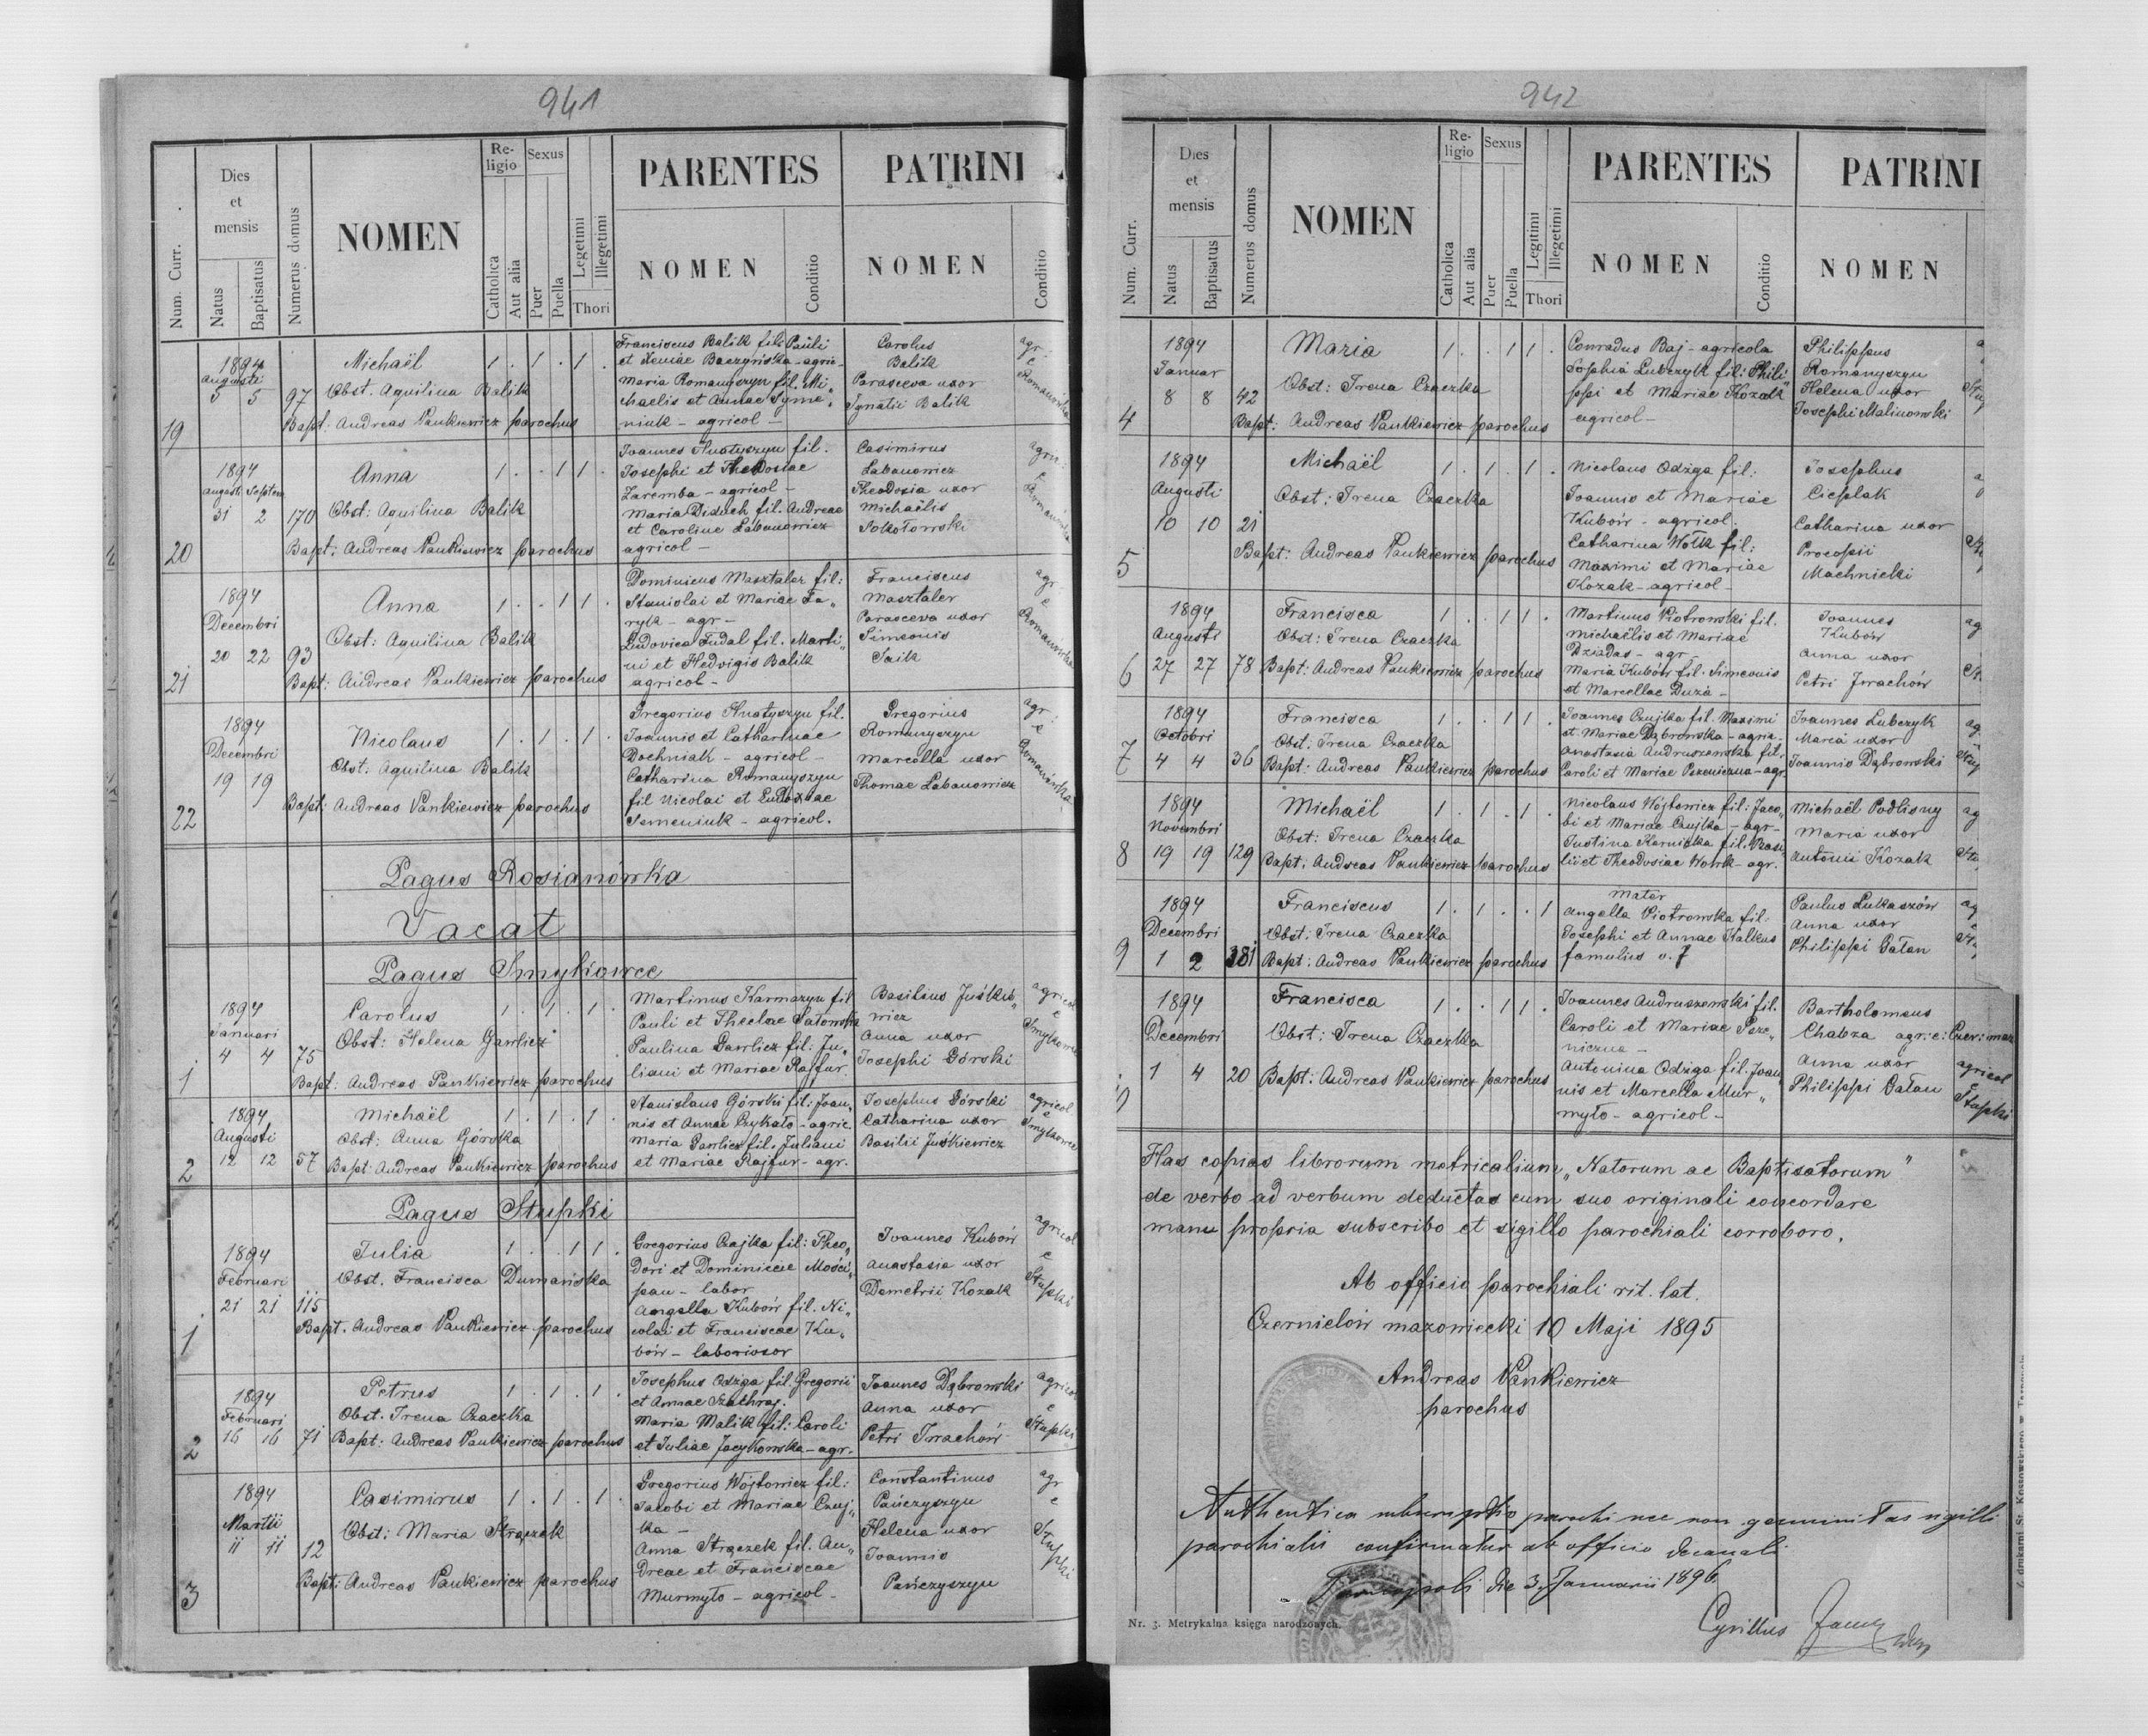 941
Num. Curr.
Dies et mensis
Natus
Baptisatus
Numerus domus
NOMEN
Religio
Catholica
Aut alia
Sexus
Puer
Puella
Legetimi
Illegetimi
Thori
PARENTES
NOMEN
Conditio
PATRINI
NOMEN
Conditio
19
1894
Augusti
5 5
97
Michaël
Obst. Aquilina Balik
Bapt: Andreas Pankiewicz parochus
1 . 1 . 1 .
Franciscus Balik fil: Pauli
et Xeniae Baczyńska - agric -
Maria Romanyszyn fil. Mi„
chaelis et Annae Syme„
niuk - agricol -
Carolus
Balik
Parasceva uxor
Ignatii Balik
agr:
e
Romanówka
20
1894
August Septem
31 2
170
Anna
Obst: Aquilina Balik
Bapt: Andreas Pankiewicz parochus
1 . . 1 1 .
Joannes Hnatyszyn fil.
Josephi et Theodosiae
Zaremba - agricol -
Maria Diduch fil. Andreae
et Caroline Labanowicz
agricol -
Casimirus
Labanowicz
Theodosia uxor
Michaëlis
Sokołowski
agric.
e
Romanówka
21
1894
Decembri
20 22
93
Anna
Obst: Aquilina Balik
Bapt: Andreas Pankiewicz parochus
1 . . 1 1 .
Dominicus Masztaler fil:
Stanislai et Mariae Ta„
ryk - agr -
Ludovica Fudal fil. Marti„
ni et Hedvigis Balik
agricol -
Franciscus
Masztaler
Parasceva uxor
Simeonis
Saik
agr
e
Romanówka
22
1894
Decembri
19 19
Nicolaus
Obst: Aquilina Balik
Bapt: Andreas Pankiewicz parochus
1 . 1 . 1 .
Gregorius Hnatyszyn fil.
Joannis et Catharinae
Dochniak - agricol -
Catharina Romanyszyn
fil Nicolai et Eudoxiae
Semeniuk - agricol.
Gregorius
Romanyszyn
Marcella uxor
Thomae Labanowicz
agr:
e
Romanówka
Pagus Rosianówka
Vacat
Pagus Smykowce
1
1894
Januari
4 4
75
Carolus
Obst: Helena Gawlicz
Bapt: Andreas Pankiewicz parochus
1 . 1 . 1 .
Martinus Karmazyn fil
Pauli et Theclae
Paulina Gawlicz fil: Ju„
liani et Mariae Rajfur.
Basilius Juśkie„
wicz
Anna uxor
Josephi Górski
agricol
e
Smykowce
2
1894
Augusti
12 12
57
Michaël
Obst: Anna Górska
Bapt: Andreas Pankiewicz parochus
1 . 1 . 1 .
Stanislaus Górski fil: Joan„
nis et Annae Czykało - agric.
Maria Gawlicz fil. Juliani
et Mariae Rajfur - agr.
Josephus Górski
Catharina uxor
Basilii Juśkiewicz
agricol
e
Smykowce
Pagus Stupki
1
1894
Februari
21 21
115
Julia
Obst. Francisca Dumańska
Bapt. Andreas Pankiewicz parochus
1 . . 1 1 .
Gregorius Czajka fil: Theo„
dori et Dominicae Mości„
pan - labor
Angella Kubów fil. Ni„
colai et Franciscae Ku„
bów - laboriosor
Joannes Kubów
Anastasia uxor
Demetrii Kozak
agricol
e
Stupki
2
1894
Februari
16 16
71
Petrus
Obst: Irena Czaczka
Bapt: Andreas Pankiewicz parochus
1 . 1 . 1 .
Josephus Odzga fil. Gregorii
et Annae
Maria Malik fil: Caroli
et Juliae Jacykowska - agr.
Joannes Dąbrowski
Anna uxor
Petri Iwachów
agricol
e
Stupki
3
1894
Martii
11 11
12
Casimirus
Obst: Maria Strączek
Bapt: Andreas Pankiewicz parochus
1 . 1 . 1 .
Gregorius Wójtowicz fil:
Jacobi et Mariae Czuj„
ka -
Anna Strączek fil. An„
dreae et Franciscae
Murmyło - agricol -
Constantinus
Pańczyszyn
Helena uxor
Joannis
Pańczyszyn
agr
e
Stupki
942
Num. Curr.
Dies et mensis
Natus
Baptisatus
Numerus domus
NOMEN
Religio
Catholica
Aut alia
Sexus
Puer
Puella
Legitimi
Illegetimi
Thori
PARENTES
NOMEN
Conditio
PATRINI
NOMEN
4
1894
Januar
8 8
42
Maria
Obst: Irena Czaczka
Bapt: Andreas Pankiewicz parochus
1 . . 1 1 .
Conradus Baj - agricola
Sophia Lubczyk fil: Phili„
ppi et Mariae Kozak
agricol -
Philippus
Romanyszyn
Helena uxor
Josephi Malinowski
5
1894
Augusti
10 10
21
Michaël
Obst: Irena Czaczka
Bapt: Andreas Pankiewicz parochus
1 . 1 . 1 .
Nicolaus Odzga fil:
Joannis et Mariae
Kubów - agricol.
Catharina Wołk fil:
Maximi et Mariae
Kozak - agricol -
Josephus
Cieplak
Catharina uxor
Procopii
Machnicki
6
1894
Augusti
27 27
78
Francisca
Obst: Irena Czaczka
Bapt: Andreas Pankiewicz parochus
1 . . 1 1 .
Martinus Piotrowski fil.
Michaëlis et Mariae
Dziadas - agr -
Maria Kubów fil. Simeonis
et Marcellae Duża -
Joannes
Kubów
Anna uxor
Petri Iwachów
ag
7
1894
Octobri
4 4
36
Francisca
Obst: Irena Czaczka
Bapt: Andreas Pankiewicz parochus
1 . . 1 1 .
Joannes Czujka fil. Maximi
et Mariae Dąbrowska - agric -
Anastasia Andruszewska fil.
Caroli et Mariae Pszeniczna - agr.
Joannes Lubczyk
Maria uxor
Joannis Dąbrowski
ag
8
1894
Novembri
19 19
129
Michaël
Obst: Irena Czaczka
Bapt: Andreas Pankiewicz parochus
1 . 1 . 1 .
Nicolaus Wójtowicz fil: Jaco„
bi et Mariae Czujka - agr -
Justina Karnicka fil. Basi„
lii et Theodosiae Wowk - agr.
Michaël Podlisny
Maria uxor
Antonii Kozak
ag
9
1894
Decembri
1 2
181
Franciscus
Obst: Irena Czaczka
Bapt: Andreas Pankiewicz parochus
1 . 1 . . 1
Mater
Angella Piotrowska fil.
Josephi et Annae Halkus
famulus
Paulus Lukaszów
Anna uxor
Philippi Gałan
ag
10
1894
Decembri
1 4
20
Francisca
Obst: Irena Czaczka
Bapt: Andreas Pankiewicz parochus
1 . . 1 1 .
Joannes Andruszewski fil.
Caroli et Mariae Psze„
niczna -
Antonina Odzga fil. Joan„
nis et Marcella Mur„
myło - agricol -
Bartholomeus
Chabza agr: e: Czer: maz
Anna uxor
Philippi Gałan
agricol
e
Stupki
Has copias librorum metricalium „Natorum ac Baptisatorum"
de verbo ad verbum deductas cum suo originali concordare
manu propria subscribo et sigillo parochiali corroboro.
Ab officio parochiali rit. lat.
Czernielów mazowiecki 10 Maji 1895
Andreas Pankiewicz
parochus
Authentica subscriptio parochi nec non genuinitas sigilli
parochialis confirmatur ab officio decanali
Tarnopoli die 3. Januarii 1896
Cyrillus
Nr. 3. Metrykalna księga narodzonych.